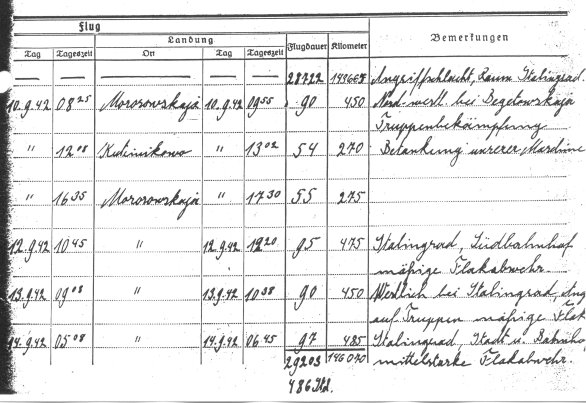 Flug
Landung Flugdauer Kilometer Bemerkungen
Tag Tageszeit Ort Tag Tageszeit
— — — — — 28722 Angriffschlacht, Raum Stalingrad
10.9.42 08 25 Morosowskaja 10.9.42 09 55 90 450 Nord-westl. bei
Truppenbekämpfung
" 12 08 Kuteinikowo " 13 02 54 270 Betankung unserer
" 16 35 Morosowskaja " 17 30 55 275
12.9.42 10 45 " 12.9.42 12 20 95 475 Stalingrad, Südbahnhof
mäßige Flakabwehr.
13.9.42 09 08 " 13.9.42 10 38 90 450 Westlich bei Stalingrad, Ang
auf Truppen mäßige Flak
14.9.42 05 08 " 14.9.42 06 45 97 485 Stalingrad, Stadt u. Bahnho
29203 146070 mittelstarke Flakabwehr.
486 Std.